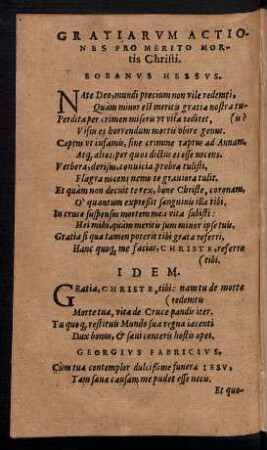 GRATIARVM ACTIO
NES PRO MERITO MOR-
tis Christi.
EOBANVS HESSVS.
NAte Deo, mundi precium non vile redempti,
Quàm minor est meritis gratia nostra tuis?
Perdita per crimen miseris vt vita rediret,
Visus es horrendum mortis obire genus.
Captus vt infamis, sine crimine raptus ad Annam,
Atq, alios, per quos dictus es esse nocens.
Verbera, derisus, conuicia, probra tulisti,
Flagra nocens nemo te grauiora tulit.
Et quàm non decuit te rex, bone Christe, coronam,
O' quantum expressit sanguinis illa tibi.
In cruce suspensus mortem mea vita subisti:
Hei mihi, quàm meritis sum minor ipse tuis.
Gratia si qua tamen poterit tibi grata referri,
Hanc quoq, me facias, CHRISTE, referre
(tibi.
IDEM.
GRatia, CHRISTE, tibi: nam tu de morte
(redemtis
Morte tua, vitæ de Cruce pandis iter.
Tu quoq, restituis Mundo sua regna iacenti
Dux bonus, & sæui conteris hostis opes.
GEORGIVS FABRICIVS.
Cùm tua contemplor dulcissime funera IESV,
Tam sæua causam me pudet esse necis.
Et quo-